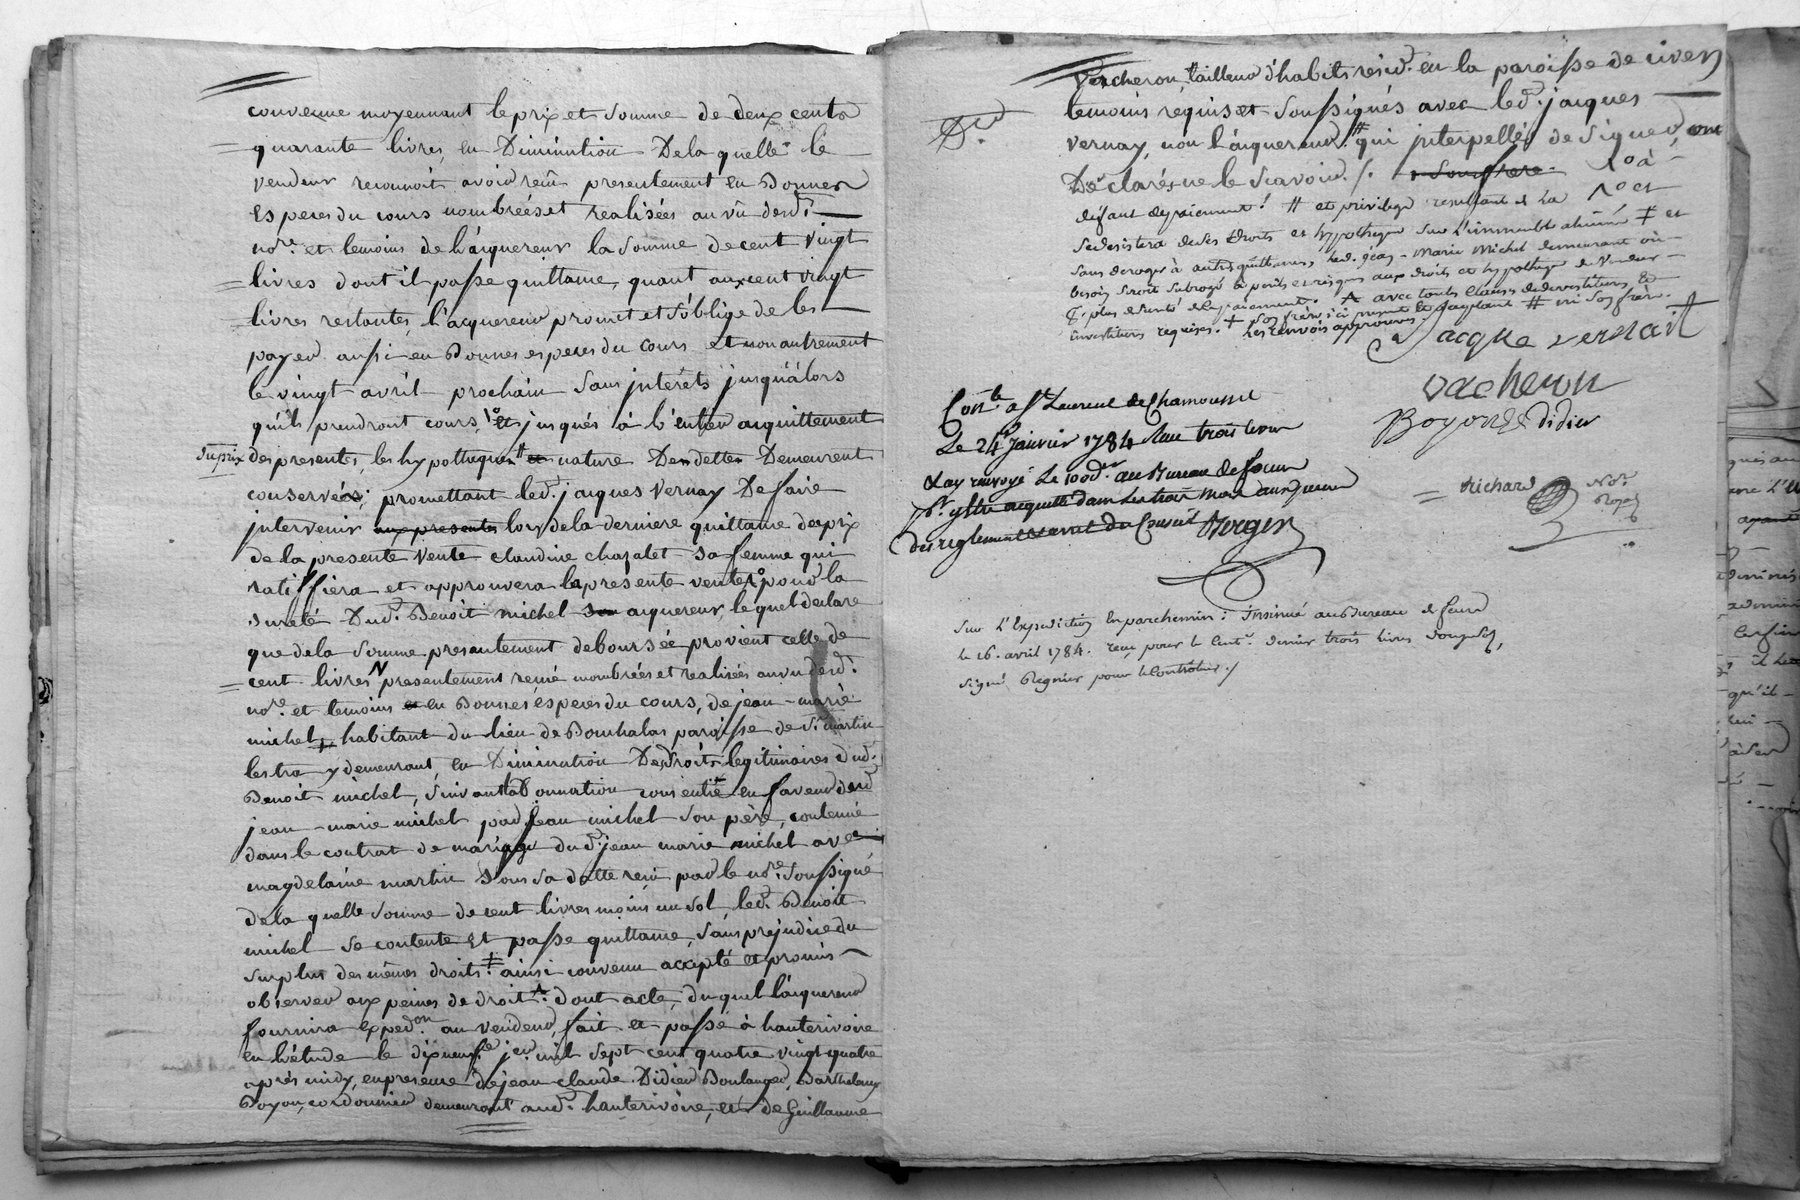 convenue moyennant le prix et somme de deux cents
quarante livres, en Diminution De la quelle le
vendeur reconnoit avoir reçu presentement en Bonnes
Especes du cours nombrées et realisées au vû desd.
nore. et temoins de l'acquereur la somme de cent vingt
livres dont il passe quittance, quant aux cent vingt
livres restantes, l'acquereur promet et s'oblige de les
payer aussi en Bonnes especes du cours et non autrement
le vingt avril prochain sans intérêts jusqu'alors
qu'ils prendront cours, et jusqués à l'entier acquittement
du prix des presentes, les hypotheques # et nature Des dettes Demeurent
conservées; promettant led. jacques Vernay De faire
intervenir aux presentes lors de la derniere quittance du prix
de la presente vente claudine chazalet sa femme qui
ratiffiera et approuvera la presente vente pour la
sureté Dud. Benoit michel son acquereur, lequel declare
que de la somme presentement deboursée provient celle de
cent livres presentement remie nombrées et realisées au vu desd.
nore. et temoins et en Bonnes éspeces du cours, de jean-marie
michel, habitant du lieu de Bouchalas paroisse de St. martin
lestra y demeurant, en Diminution Des Droits legitimaires dud.
Benoit michel, suivant la Donnation consentie en faveur dud.
jean-marie michel par jean michel son père, contenue
dans le contrat de mariage dud. jean marie michel avec
magdelaine martin sous sa datte reçu par le nore. soussigné
de la quelle somme de cent livres moins un sol, led. Benoit
michel se contente et passe quittance, sans prejudice du
surplus des mêmes droits ‡ ainsi convenu accepté et promis
observer aux peines de droit. dont acte, duquel l'acquereur
fournira expedon. au vendeur, fait et passé à hauterivoire
en l'étude le dixneuf jer. mil sept cent quatre vingt quatre
après midy, en presence de jean claude Didier Boulanger, Barthelemy
Boyon, cordonnier demeurant aud. hauterivoire, et de Guillaume
Vacheron, tailleur d'habits resid. en la paroisse de civen
temoins requis et soussignés avec led. jacques
vernay, non l'acquereur # qui interpellés de signer, ont
Declarés ne le sçavoir. /. à
défaut de paiement. # et privilege resultant de la
se desistera de ses droits et hypotheque sur l'immeuble aliéné ‡ et
sans deroger à autres quittances, led. jean-Marie Michel demeurant où
besoin seroit subrogé à perils et risques aux droits et hypotheque du vendeur
plus de sureté de paiement. avec toutes clauses de devestitures et
investitures requises. + son frere ici present et acceptant # ni son frère.
les renvois approuvés.
Jacque vernait
vacheron
Boyon didier
richard Nore. Royal
Conle. a St Laurent de Chamousset
Le 24 Janvier 1784 Reçu trois livres
& ay renvoyé Le 100d. au Bureau de feurs
pr. y etre acquitté dans les trois mois aux peines
des reglements et arret du Conseil Borgen
Sur L'Expedition en parchemin: insinué au Bureau de feurs
le 16. avril 1784. reçu pour le Cent. denier trois livres douze sols,
signé Regnier pour le Controleur. /